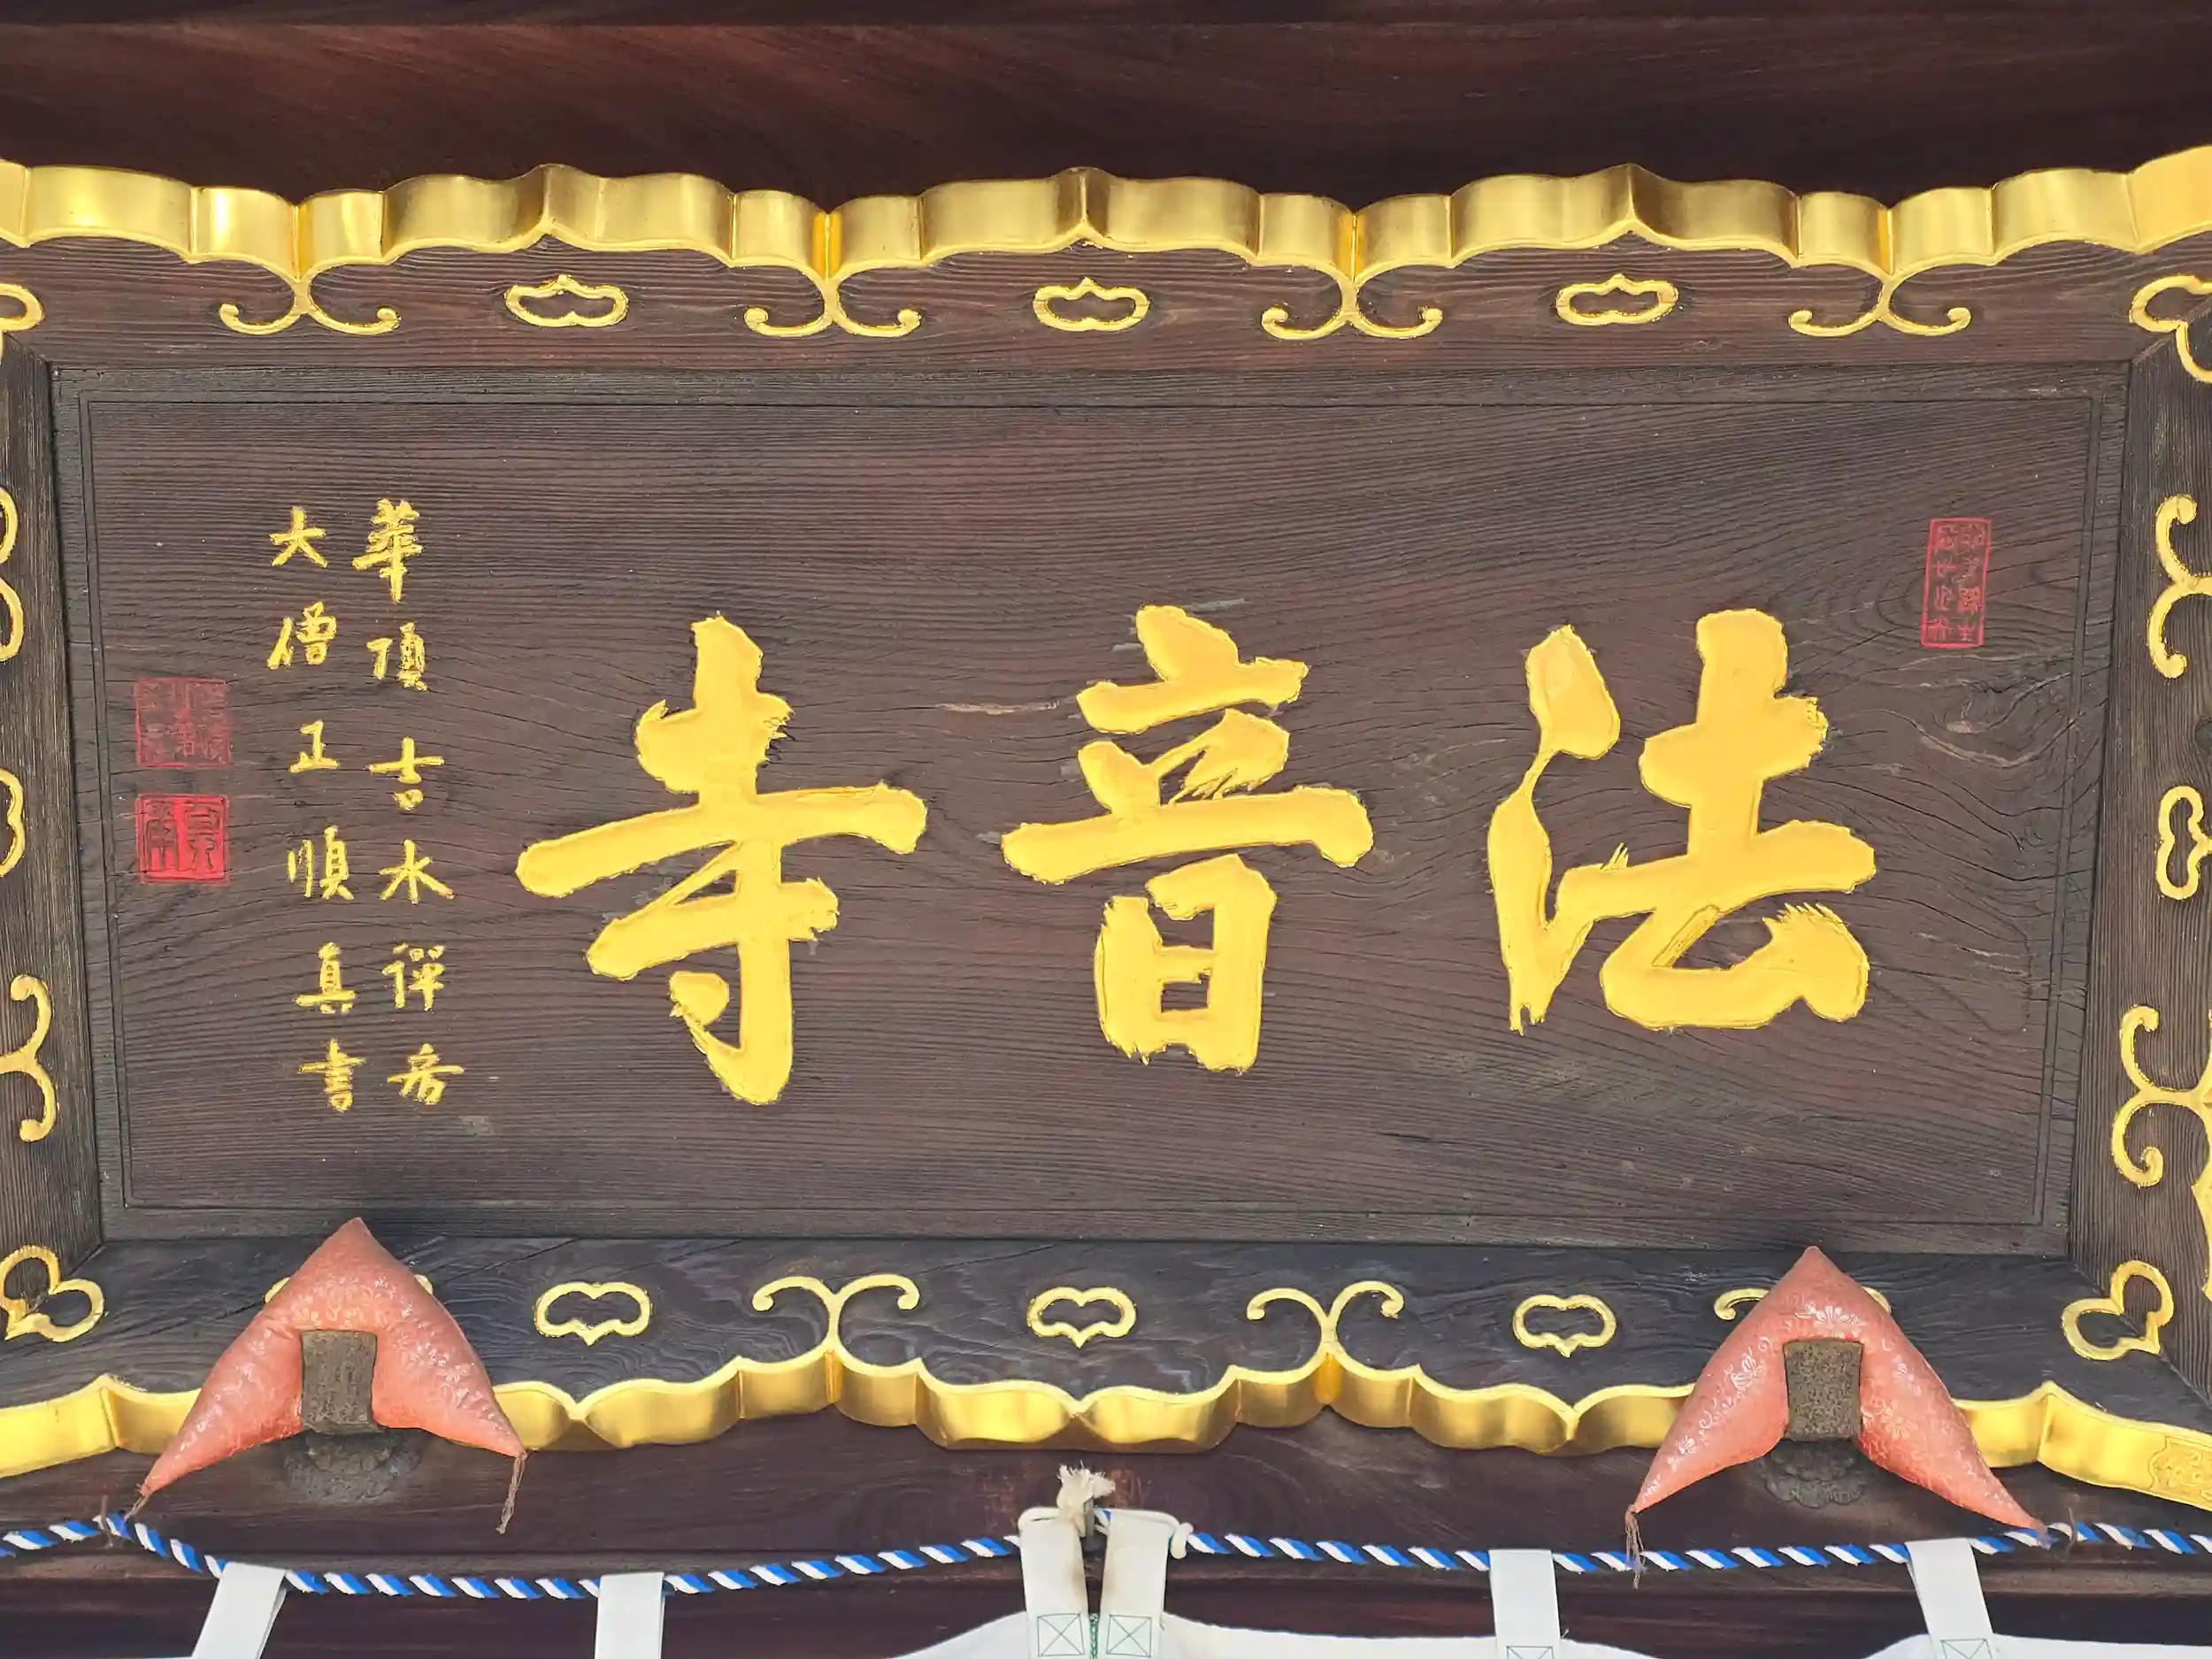 法音寺
華頂吉水禅房
大僧正順真書